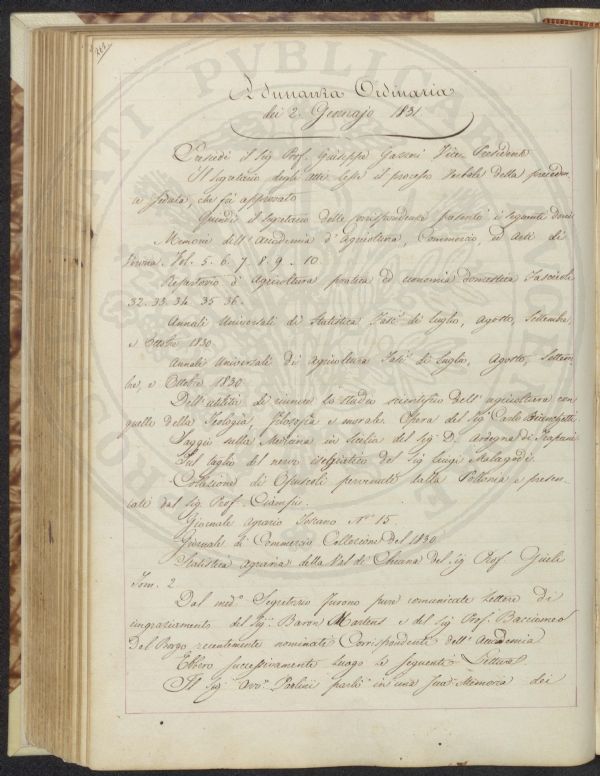 Adunanza Ordinaria
dei 2. Gennajo 1831.
Presiedè il Sig. Prof. Giuseppe Gazzeri Vice Presidente
Il Segretario degli Atti lesse il processo verbale della preceden
te seduta, che fu approvato
Quindi il Segretario delle corrispondenze presentò i seguenti doni
Memorie dell'Accademia d'Agricoltura, Commercio, ed Arti di
Verona. Vol. 5. 6. 7. 8. 9. 10.
Repertorio d'Agricoltura pratica ed economia domestica Fascicoli
32. 33. 34. 35 36.
Annali Universali di Statistica Fasc. di luglio, agosto, Settembre,
e Ottobre 1830
Annali Universali di Agricoltura Fasc. di Luglio, Agosto, Settem
bre, e Ottobre 1830
Dell'utilità di riunire lo studio scientifico dell'agricoltura con
quello della Teologia, filosofia e morale. Opera del Sig. Carlo
Saggio sulla in Sicilia del Sig. D. di Trapani
Sul taglio del nervo del Sig. Luigi Malagodi.
Collezione di Opuscoli pervenuti dalla Pollonia e presen
tati dal Sig. Prof. Ciampi.
Giornale Agrario Toscano N.° 15
Giornale di Commercio Collezione del 1830
Statistica agraria della Val di Chiana del Sig. Prof. Giuli
Tom. 2
Dal med.° Segretario furono pure comunicate lettere di
ringraziamento del Sig. Baron Martens e del Sig. Prof.
Del Borgo recentemente nominati Corrispondenti dell'Accademia
Ebbero successivamente luogo le seguenti Letture
Il Sig. Avv.° Paolini parlò in una sua Memoria dei